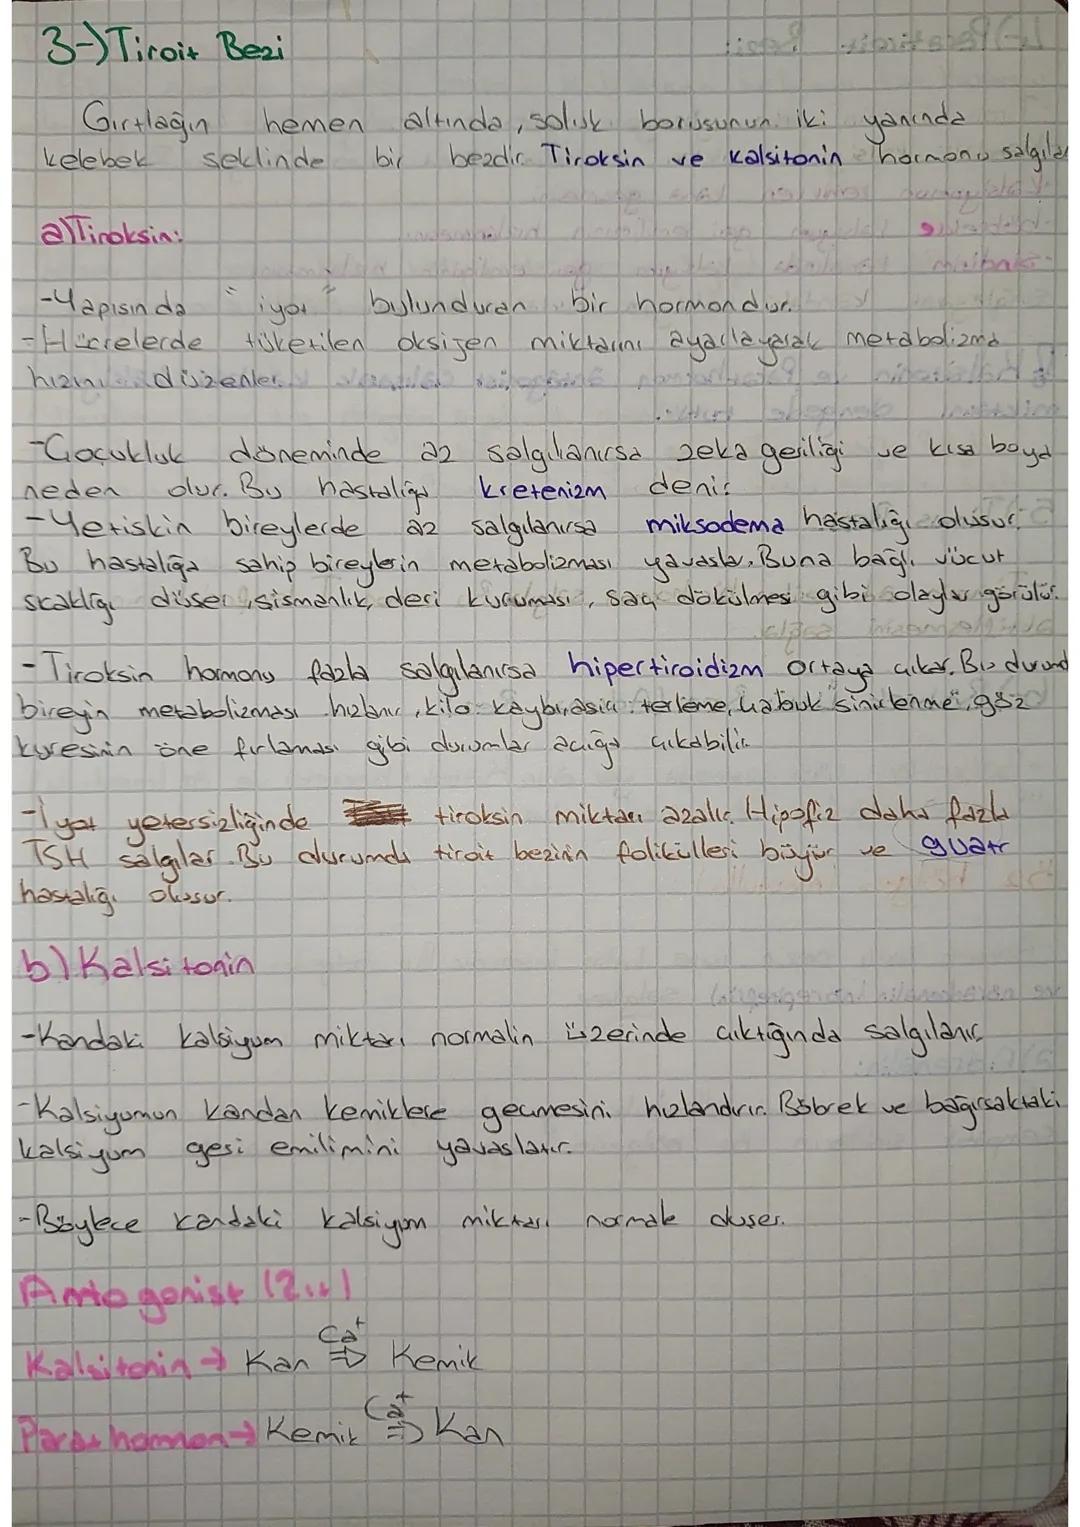 3-) Tiroit Bezi
Gırtlağın hemen altında, soluk borusunun iki yanında
kelebek şeklinde bir bezdir. Tiroksin ve kalsitonin hormonu salgılar
a) Tiroksin:
-Yapısında "iyot" bulunduran bir hormondur.
-Hücrelerde tüketilen oksijen miktarını ayarlayarak metabolizma
hızını düzenler.
-Çocukluk döneminde az salgılanırsa zeka geriliği ve kısa boya
neden olur. Bu hastalığa kretenizm denir
-Yetişkin bireylerde az salgılanırsa miksodema hastalığı oluşur.
Bu hastalığa sahip bireylerin metabolizması yavaşlar. Buna bağlı vücut
sıcaklığı düşer, şişmanlık, deri kuruması, saç dökülmesi gibi olaylar görülür.
-Tiroksin hormonu fazla salgılanırsa hipertiroidizm ortaya çıkar. Bu durumd
bireyin metabolizması hızlanır, kilo kaybı, aşırı terleme, çabuk "sinirlenme", göz
küresinin öne fırlaması gibi durumlar açığa çıkabilir.
-İyot yetersizliğinde tiroksin miktarı azalır. Hipofiz daha fazla
TSH salgılar. Bu durumda tiroit bezinin folikülleri büyür ve guatr
hastalığı oluşur.
b) Kalsitonin
-Kandaki kalsiyum miktarı normalin üzerinde çıktığında salgılanır.
-Kalsiyumun kandan kemiklere geçmesini hızlandırır. Böbrek ve bağırsaktaki
kalsiyum geri emilimini yavaşlatır.
-Böylece kandaki kalsiyum miktarı normale düşer.
Antogonist (Zıt)
Kalsitonin → Kan Ca+ ⇒ Kemik
Parathormon → Kemik Ca+ ⇒ Kan